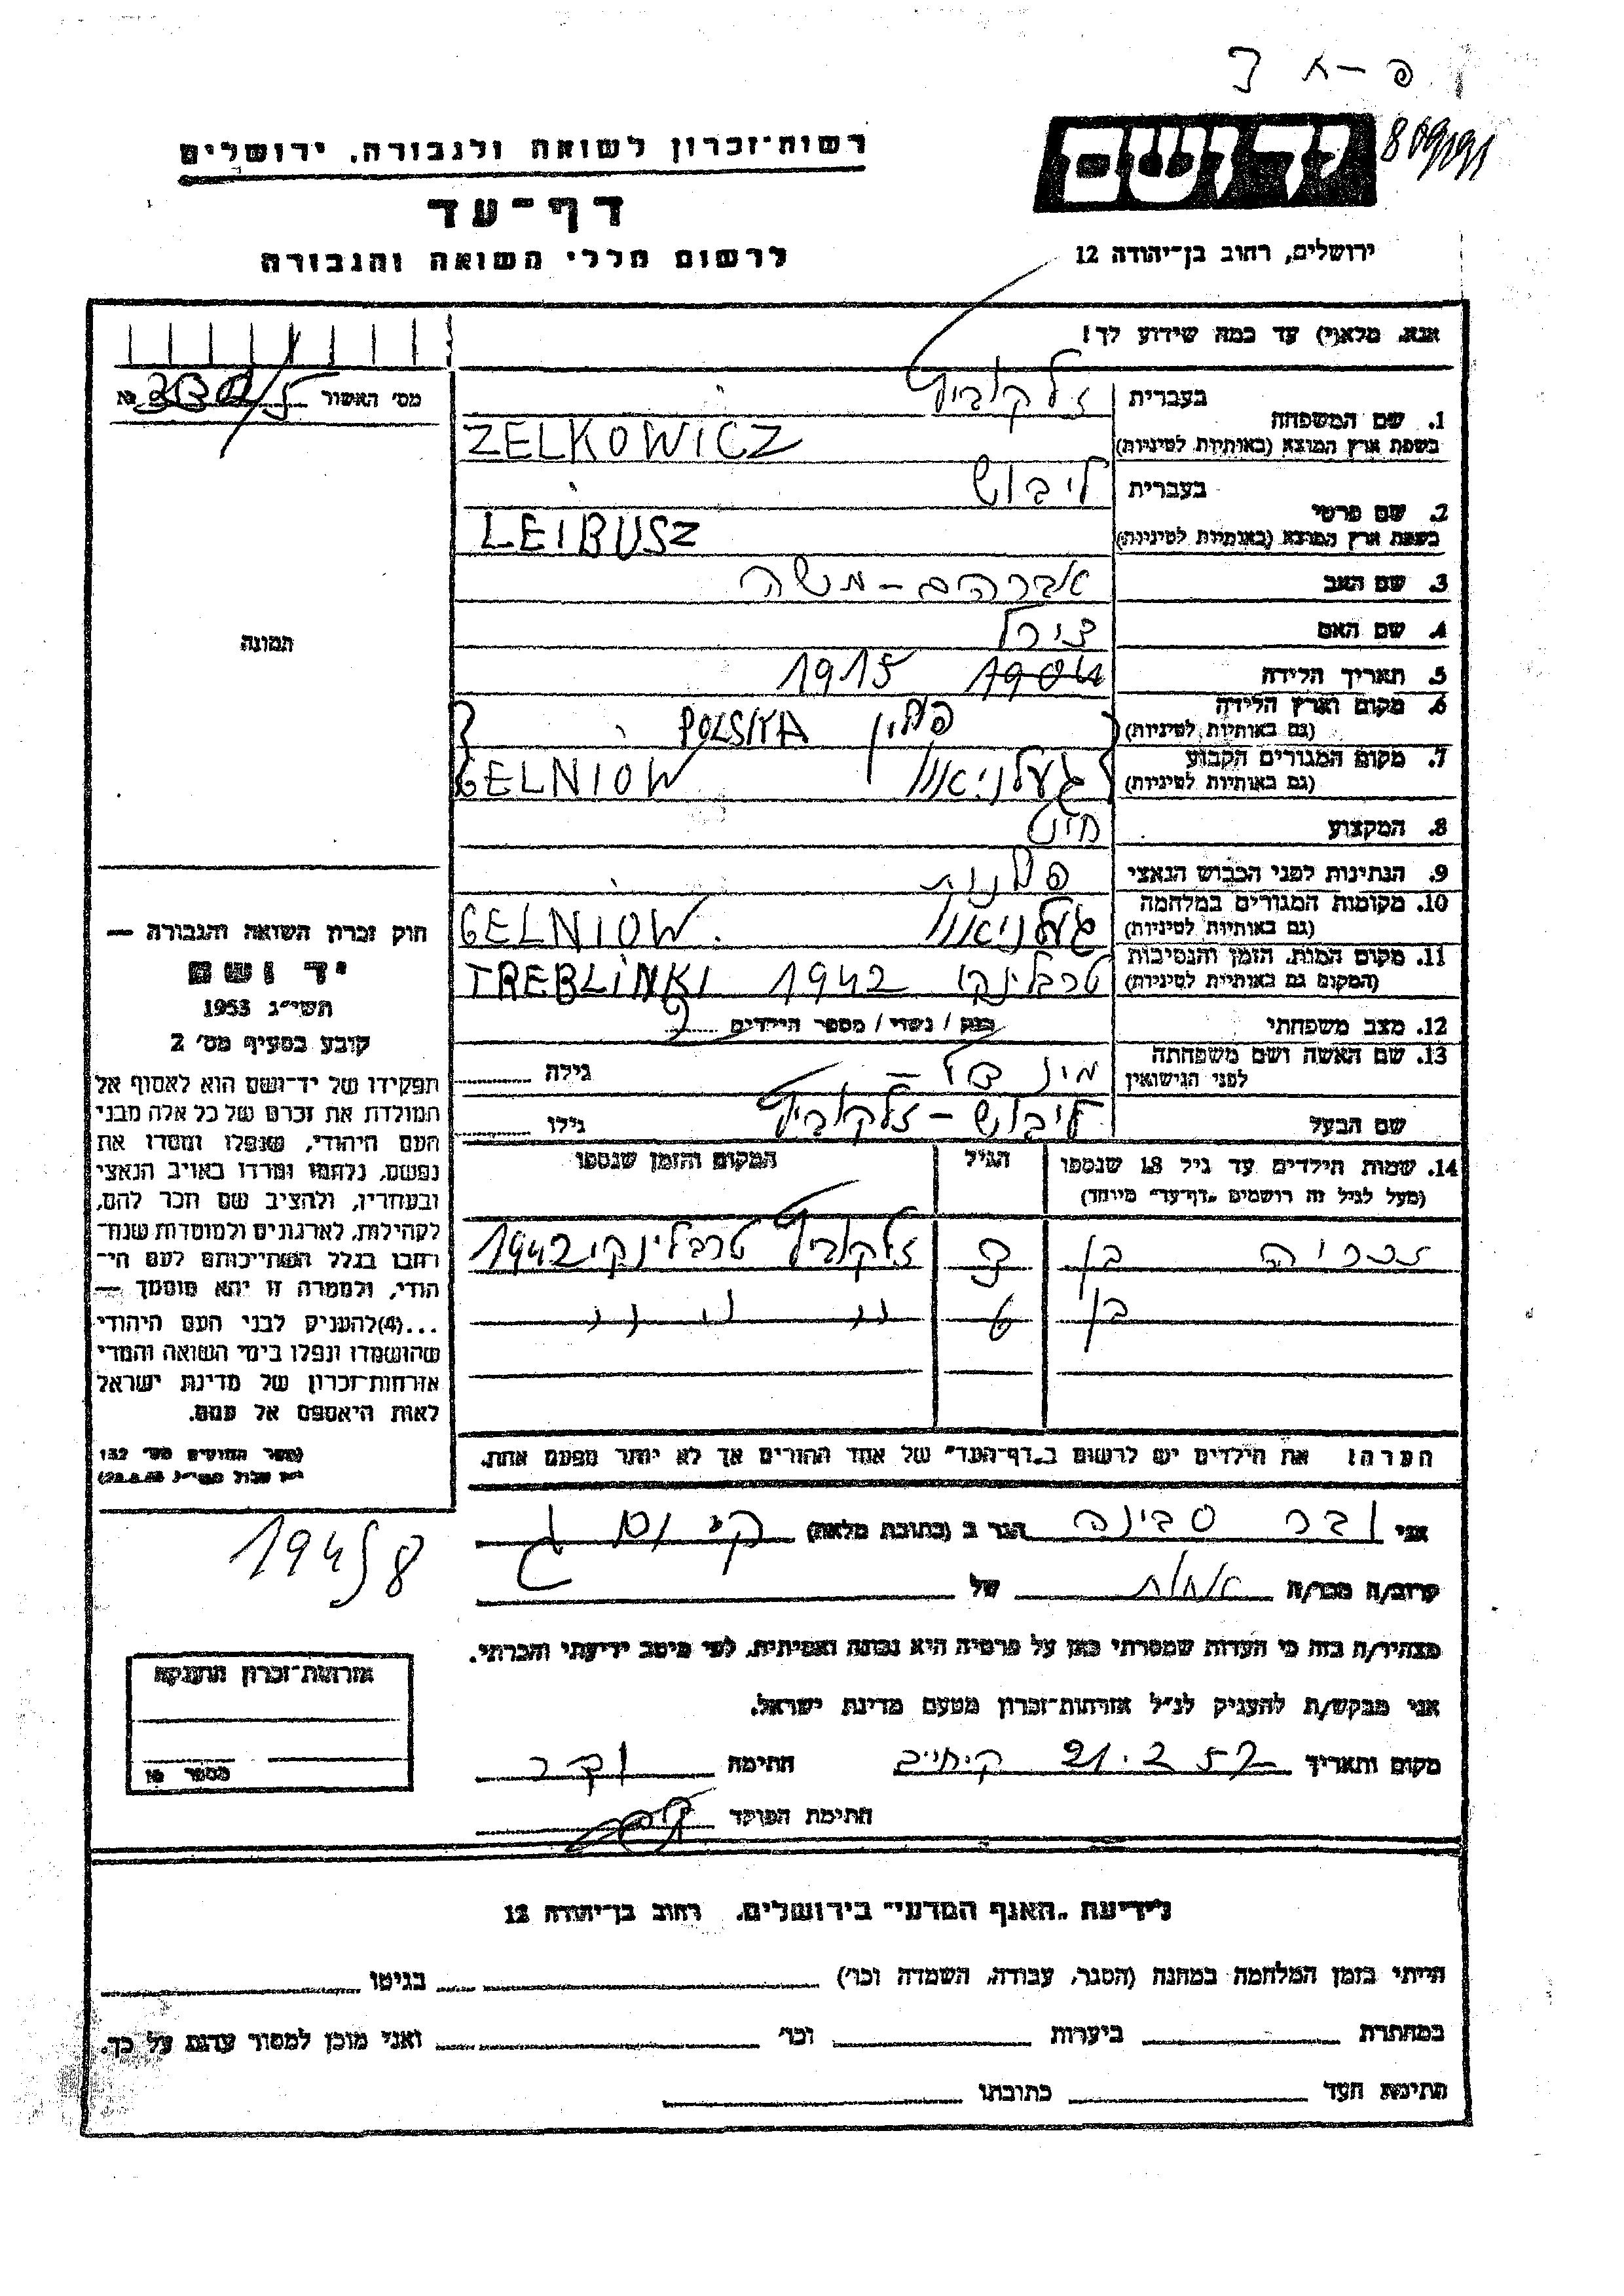 פ-א ד
רשות־זכרון לשואה ולגבורה, ירושלים
יד ושם
דף־עד
לרשום חללי השואה והגבורה
ירושלים, רחוב בן־יהודה 12
אנא, מלא(י) עד כמה שידוע לך!
מס׳ האשור
1. שם המשפחה
בעברית זלקוביץ
בשפת ארץ המוצא (באותיות לטיניות) ZELKOWICZ
2. שם פרטי
בעברית ליבוש
בשפת ארץ המוצא (באותיות לטיניות) LEIBUSZ
3. שם האב אברהם - משה
4. שם האם צירל
תמונה
5. תאריך הלידה 1904 1915
6. מקום וארץ הלידה פולין POLSKA
(גם באותיות לטיניות)
7. מקום המגורים הקבוע געלניאוו GELNIOW
(גם באותיות לטיניות)
8. המקצוע חיט
9. הנתינות לפני הכבוש הנאצי פולנית
10. מקומות המגורים במלחמה געלניאוו GELNIOW.
(גם באותיות לטיניות)
11. מקום המות, הזמן והנסיבות טרבלינקי 1942 TREBLINKI
(המקום גם באותיות לטיניות)
12. מצב משפחתי רווק / נשוי / מספר הילדים 2
13. שם האשה ושם משפחתה גילה
לפני הנישואין
שם הבעל ליבוש - זלקוביץ גילו
14. שמות הילדים עד גיל 18 שנספו הגיל המקום והזמן שנספו
(מעל לגיל זה רושמים „דף־עד״ מיוחד)
זכריה בן זלקוביץ טרבלינקי 1942
בן 6 ״ ״ ״
הערה: את הילדים יש לרשום ב„דף־העד״ של אחד ההורים אך לא יותר מפעם אחת.
חוק זכרון השואה והגבורה —
יד ושם
תשי״ג 1953
קובע בסעיף מס׳ 2
תפקידו של יד־ושם הוא לאסוף אל
המולדת את זכרם של כל אלה מבני
העם היהודי, שנפלו ומסרו את
נפשם, נלחמו ומרדו באויב הנאצי
ובעוזריו, ולהציב שם וזכר להם,
לקהילות, לארגונים ולמוסדות שנח־
רבו בגלל השתייכותם לעם הי־
הודי, ולמטרה זו יהא מוסמך —
...(4)להעניק לבני העם היהודי
שהושמדו ונפלו בימי השואה והמרי
אזרחות־זכרון של מדינת ישראל
לאות היאספם אל עמם.
(ספר החוקים מס׳ 132
אני ובר סבינה הגר ב (כתובת מלאה)
קרוב/ה מכר/ה אחות של
מצהיר/ה בזה כי העדות שמסרתי כאן על פרטיה היא נכונה ואמיתית, לפי מיטב ידיעתי והכרתי.
אני מבקש/ת להעניק לנ״ל אזרחות־זכרון מטעם מדינת ישראל.
מקום ותאריך 21.2.57 חתימה ובר
חתימת הפוקד
1945/8
אזרחות־זכרון הוענקה
מספר №
לידיעת „האגף המדעי״ בירושלים, רחוב בן־יהודה 12
הייתי בזמן המלחמה במחנה (הסגר, עבודה, השמדה וכו׳) בגיטו
במחתרת ביערות וכו׳ ואני מוכן למסור עדות על כך.
חתימת העד כתובתו